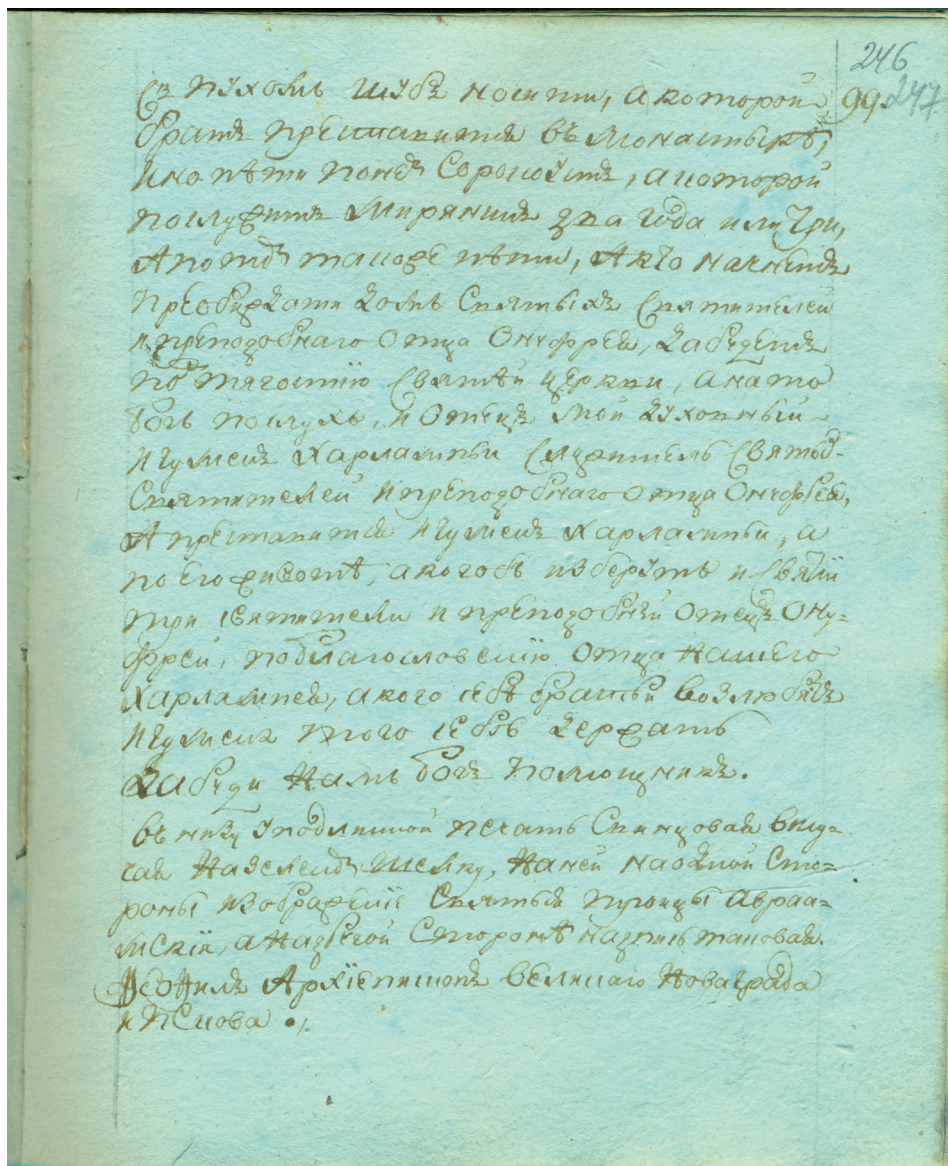 246
99. 247
съ пухомъ шубъ носити, а которой
братъ преставитъся въ монастырѣ,
ино пѣти понемъ Сорокоустъ, а которой
послужитъ Мирянинъ два года или три,
А потомъ такоже пѣти, А кто начнетъ
преобижати домъ Святыхъ Святителей
и преподобнаго Отца Онуфрея, да будетъ
подъ тягостию Святѣй церкви, а на то
богъ послухъ, и Отецъ мой духовный
Игуменъ Харлампеи служитель святыхъ
Святителей и преподобнаго отца Онуфрея,
А преставится Игуменъ Харлампеи, а
по его животѣ, а кого бъ изберутъ и святїи
три святители и преподобный отецъ Ону-
фреи, поблагословению Отца Нашего
Харлампея, а кого себѣ братьи возлюбятъ
Игумена того себѣ держатъ
да буди Намъ богъ Помощникъ.
Въ низу уподлинной печать Свинцовая вислу-
чая Назеленомъ шелку, На ней на одной сто-
роны изображенїе Святыя троицы Авраа-
мскїя, а На другой Сторонѣ надпись таковая.
Ѳеофилъ Архїепископъ Великаго Новаграда
и Пскова ./.